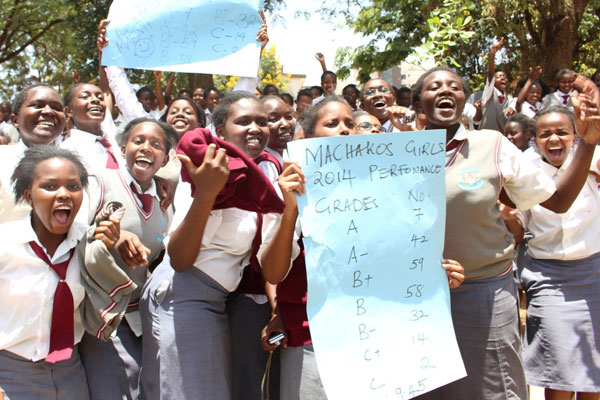 MACHAKOS GIRLS
2014 PERFOMANCE
GRADES NO-
A 7
A- 42
B+ 59
B 58
B- 32
C+ 14
C 2
9.45
C-14